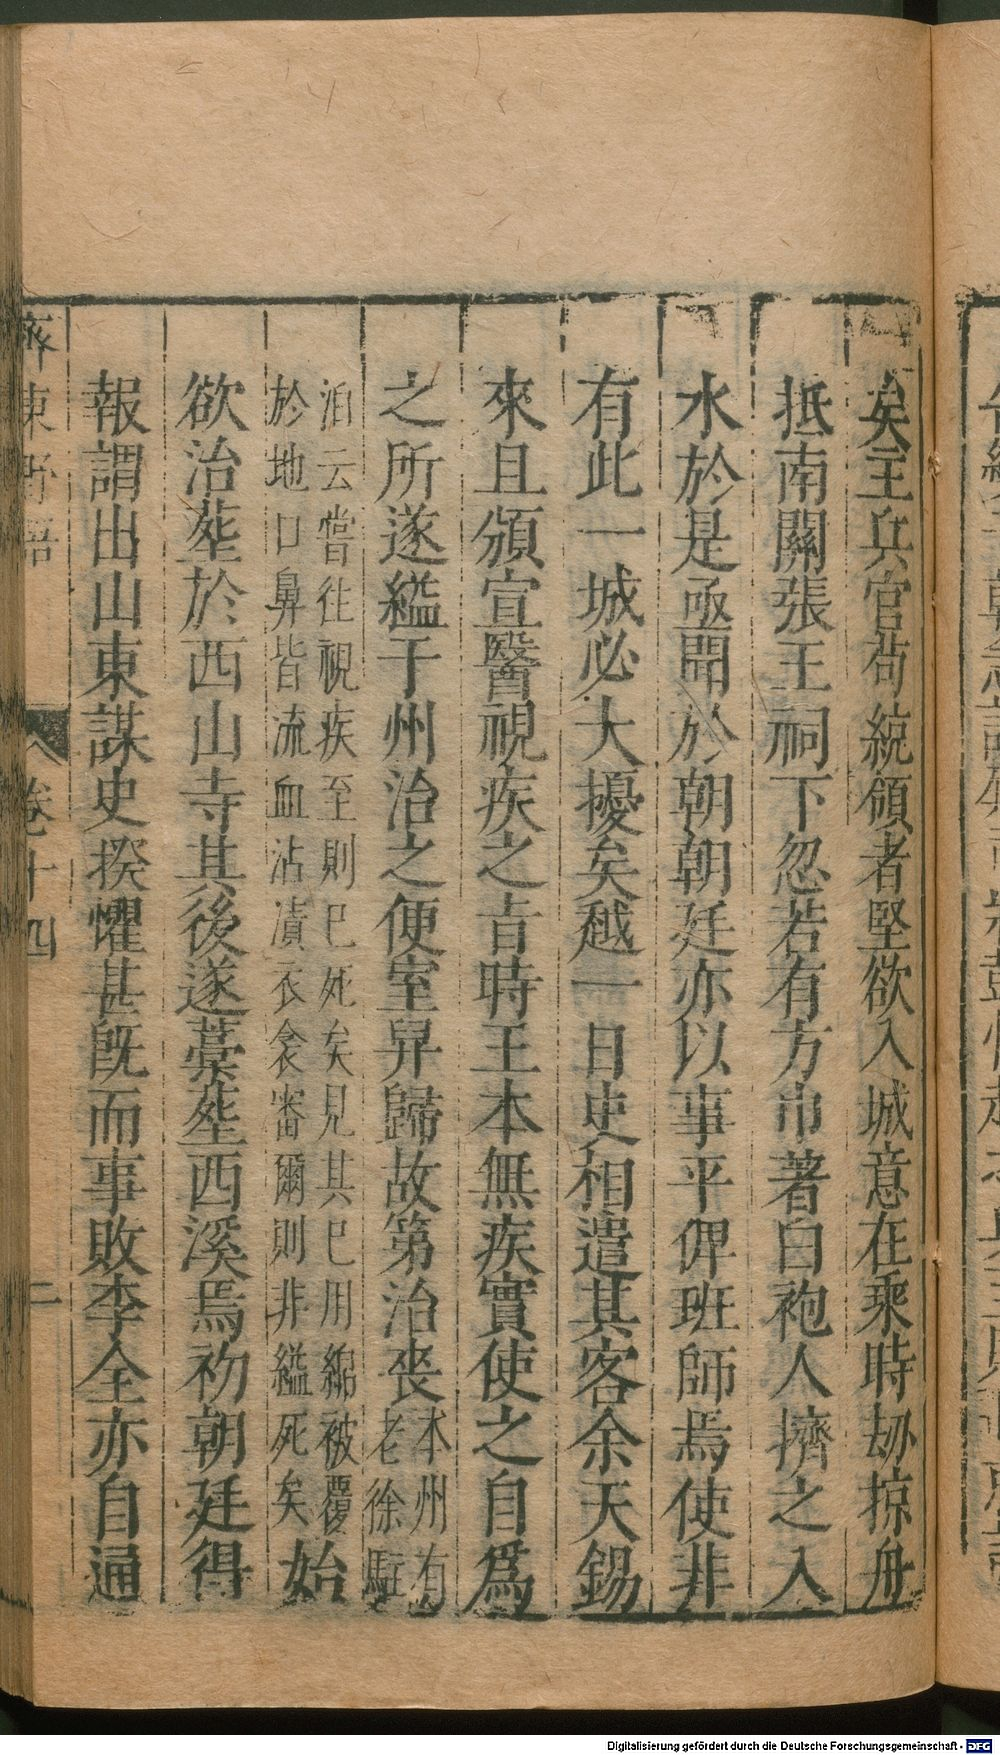 矣主兵官苟統領者堅欲入城意在乘時劫掠舟
抵南關張王祠下忽若有方巾著白袍人擠之入
水於是亟聞於朝朝廷亦以事平俾班師焉使非
有此一城必大擾矣越一日史相遣其客余天錫
來且頒宣醫視疾之旨時王本無疾實使之自爲
之所遂縊于州治之便室舁歸故第治喪本州有老徐駐
泊云嘗往視疾至則巳死矣見其巳用綿被覆
於地口鼻皆流血沾漬衣衾審爾則非縊死矣始
欲治塟於西山寺其後遂藁塟西溪焉初朝廷得
報謂出山東謀史揆懼甚旣而事敗李全亦自通
齊東野語 卷十四 二
Digitalisierung gefördert durch die Deutsche Forschungsgemeinschaft - DFG